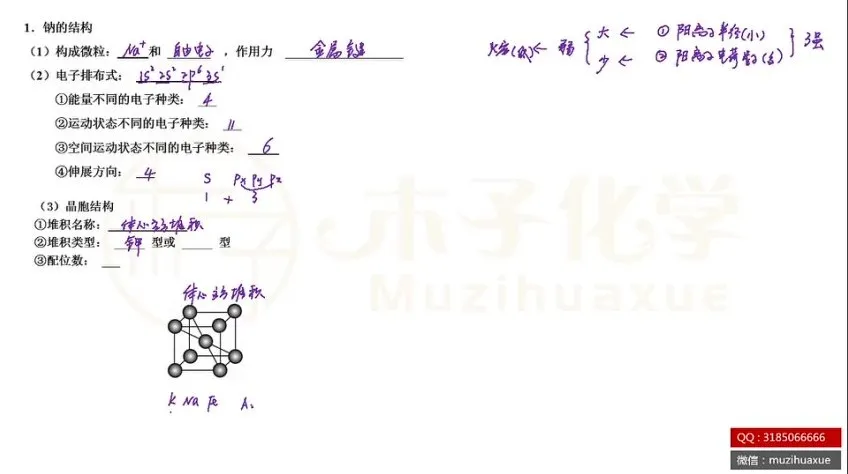 1．钠的结构
（1）构成微粒：Na⁺和 自由电子 ，作用力 金属键
（2）电子排布式：1s² 2s² 2p⁶ 3s¹
①能量不同的电子种类： 4
②运动状态不同的电子种类： 11
③空间运动状态不同的电子种类： 6
④伸展方向： 4
S Px Py Pz
1 + 3
（3）晶胞结构
①堆积名称： 体心立方堆积
②堆积类型： 钾 型或 型
③配位数：
体心立方堆积
K Na Fe
弱 大 ← ① 阳离子半径(小) 强
少 ← ② 阳离子电荷数(多)
木子化学
Muzihuaxue
QQ : 3185066666
微信 : muzihuaxue